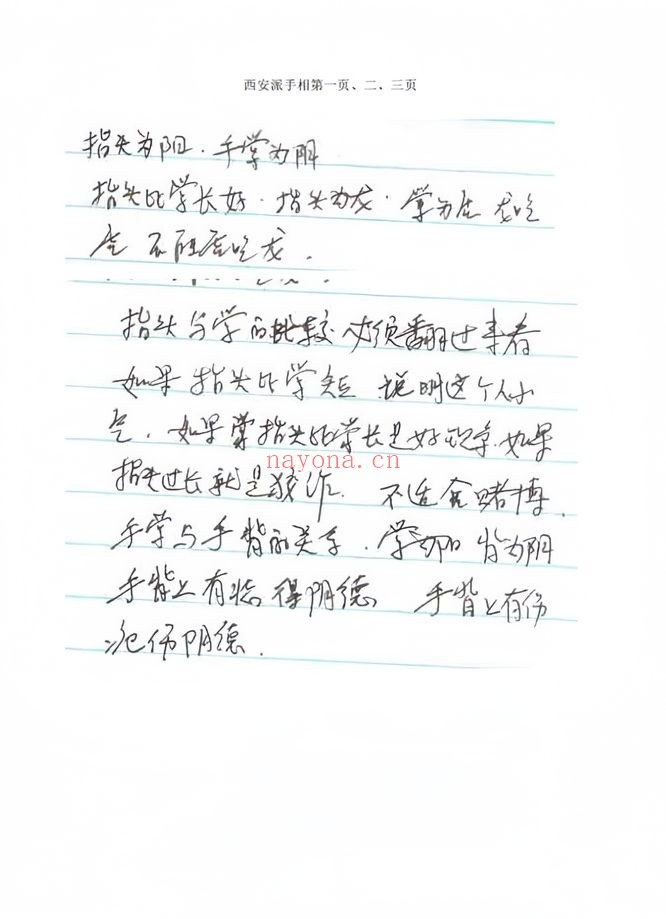 西安派手相第一页、二、三页
指头为阳.手掌为阴
指头比掌长好.指头为龙.掌为虎 龙吃
虎 不能虎吃龙.
指头与掌的比较 必须翻过来看
如果指头比掌短 说明这个人小
气.如果掌指头比掌长是好现象.如果
nayona.cn
指头过长就是狡诈. 不适合赌博.
手掌与手背的关系.掌为阳 背为阴
手背上有志得阴德 手背上有伤
疤伤阴德.